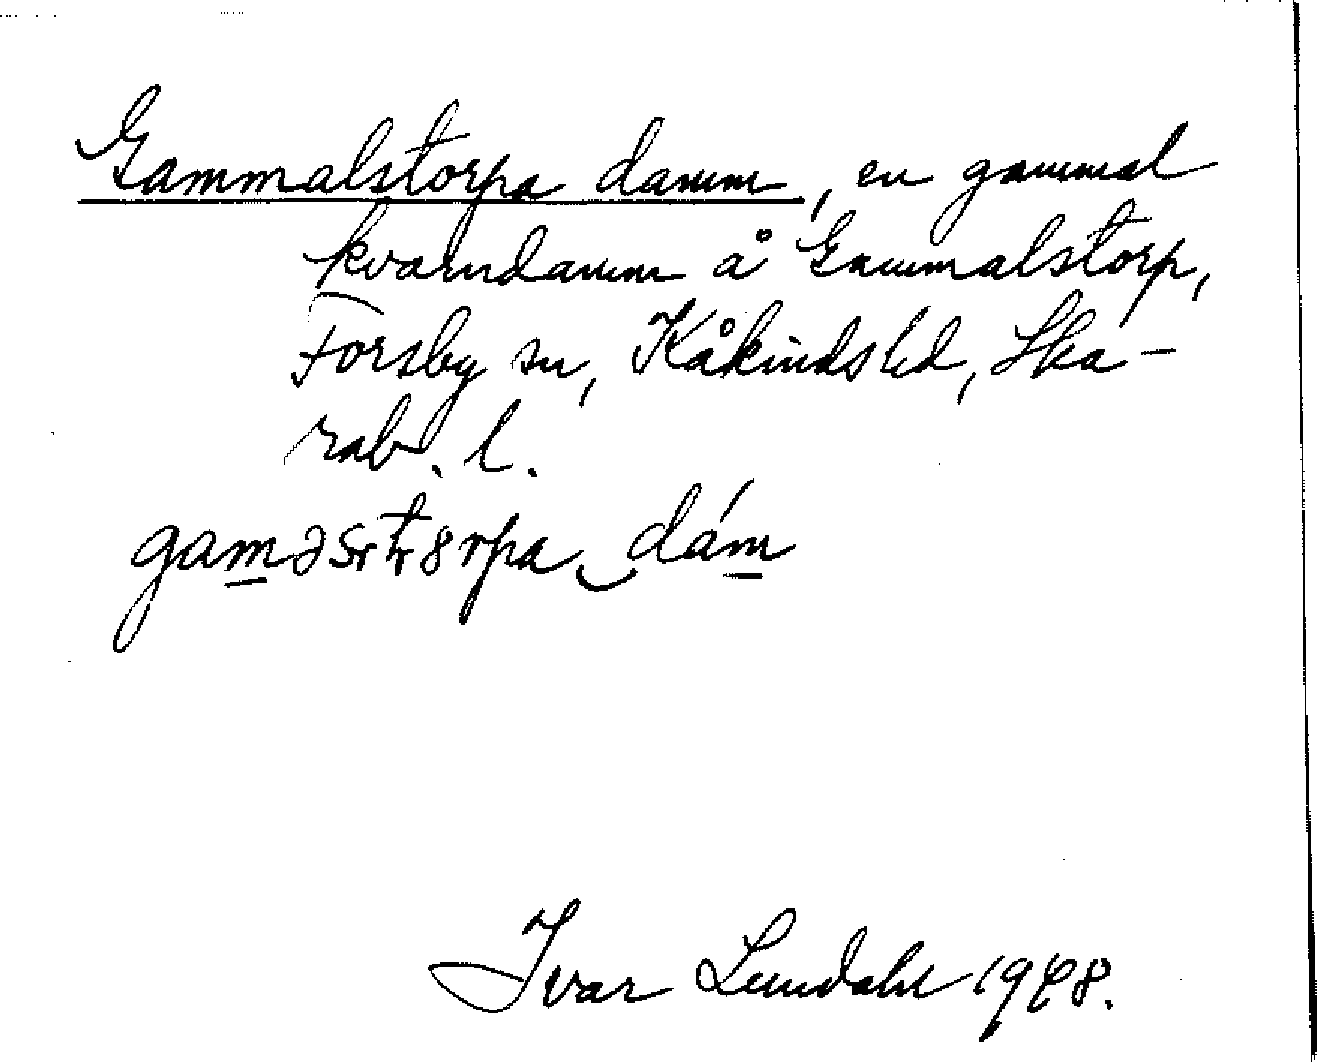 Gammalstorpa damm, en gammal
kvarndamm å Gammalstorp,
Forsby sn, Kåkinds hd, Ska-
rab. l.
gaməstt8rpa dám
Ivar Lundahl 1948.